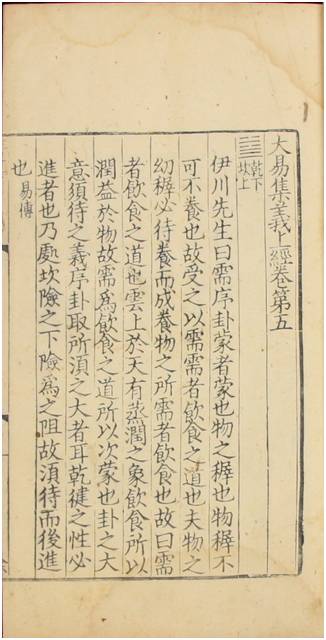 大易集義上經卷第五
乾下
坎上
伊川先生曰需序卦蒙者蒙也物之穉也物穉不
可不養也故受之以需需者飲食之道也夫物之
幼穉必待養而成養物之所需者飲食也故曰需
者飲食之道也雲上於天有蒸潤之象飲食所以
潤益於物故需爲飲食之道所以次蒙也卦之大
意須待之義序卦取所湏之大者耳乾健之性必
進者也乃處坎險之下險爲之阻故湏待而後進
也易傳